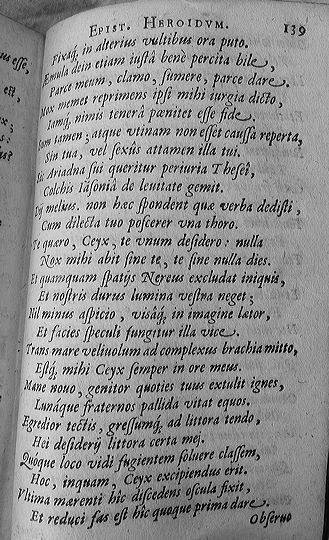 EPIST. HEROIDVM. 139
Fixaq́; in alterius vultibus ora puto.
Emula dein etiam iustâ bene percita bile,
Parce meum, clamo, sumere, parce dare.
Mox memet reprimens ipsi mihi iurgia dicto,
Iamq́; nimis tenerâ pœnitet esse fide.
Sum tamen; atque vtinam non esset caussa reperta,
Sin tua, vel sexûs attamen illa tui.
Sic Ariadna sui queritur periuria Theseî,
Colchis Iäsoniâ de leuitate gemit.
Dij melius. non hæc spondent quæ verba dedisti,
Cum dilecta tuo poscerer vna thoro.
Te quæro, Ceyx, te vnum desidero: nulla
Nox mihi abit sine te, te sine nulla dies.
Et quamquam spatijs Nereus excludat iniquis,
Et nostris durus lumina vestra neget;
Nil minus aspicio, visâq́; in imagine lætor,
Et facies speculi fungitur illa vice.
Trans mare veliuolum ad complexus brachia mitto,
Estq́; mihi Ceyx semper in ore meus.
Mane nouo, genitor quoties tuus extulit ignes,
Lunáque fraternos pallida vitat equos.
Egredior tectis, gressumq́; ad littora tendo,
Hei desiderij littora certa mej.
Quóque loco vidi fugientem soluere classem,
Hoc, inquam, Ceyx excipiendus erit.
Vltima mærenti hîc discedens oscula fixit,
Et reduci fas est hîc quoque prima dare.
Obseruo